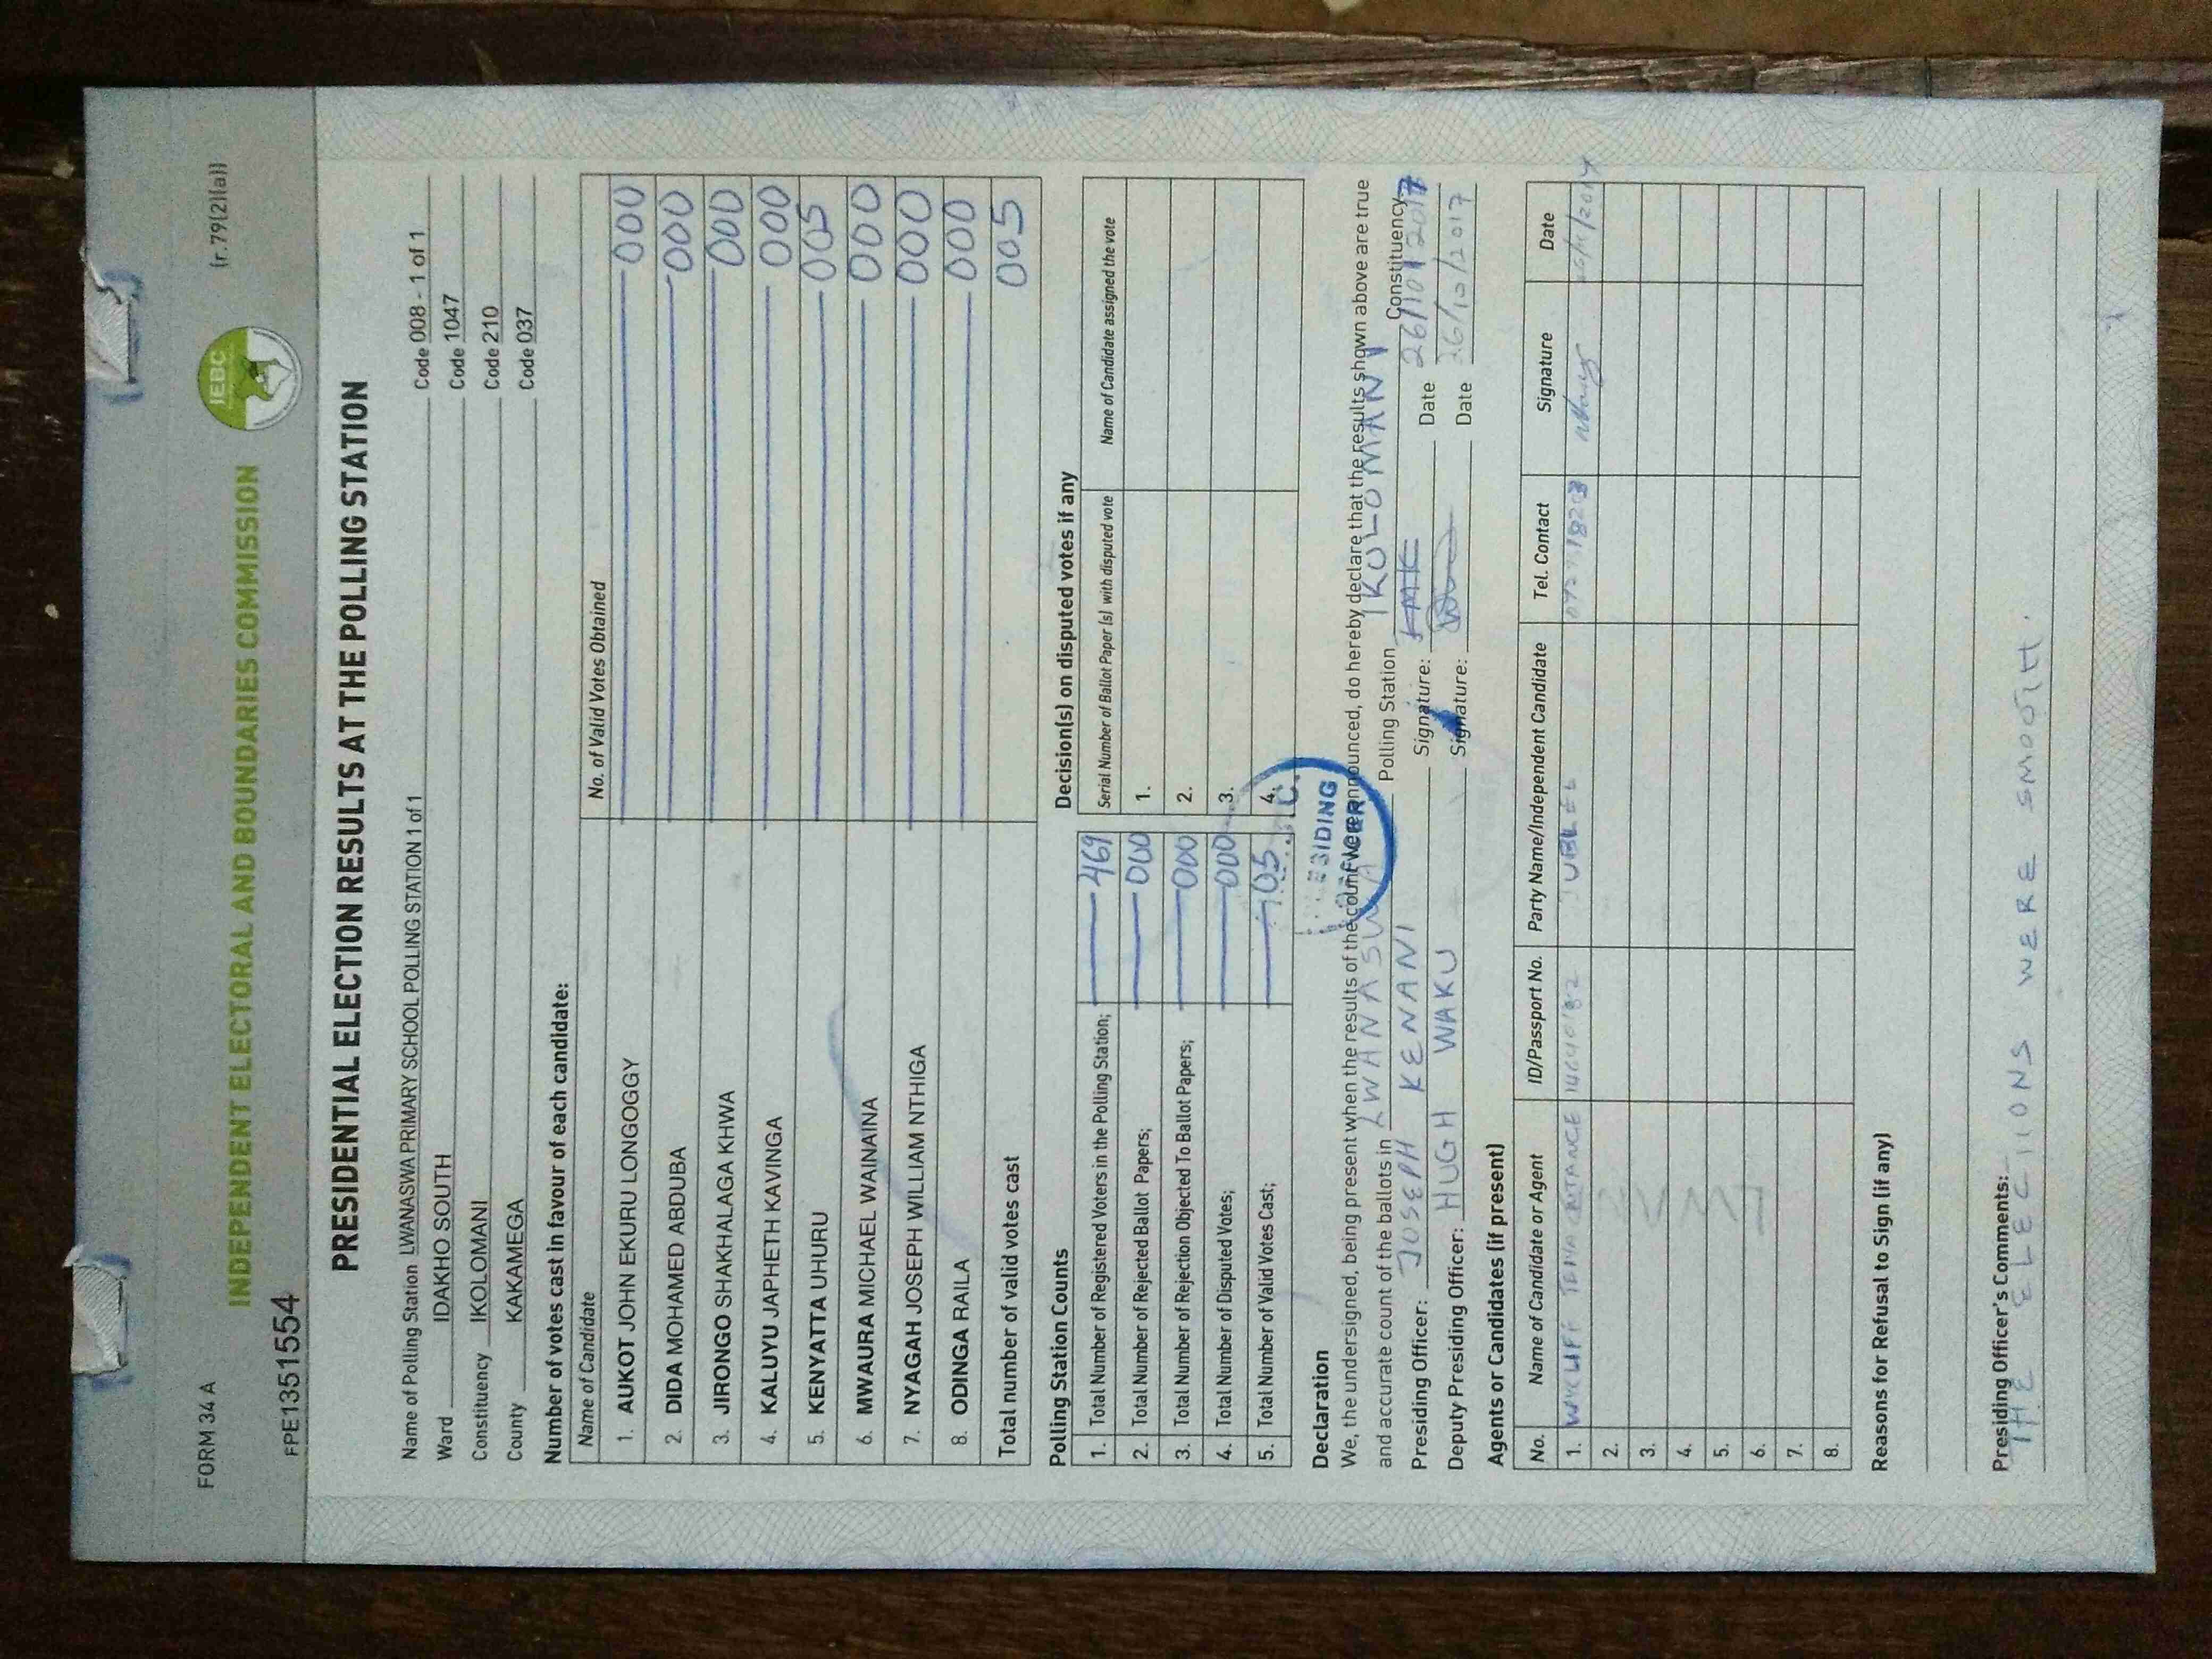 FORM 34 A
(r.79(2)(a))
INDEPENDENT ELECTORAL AND BOUNDARIES COMMISSION
IEBC
FPE1351554
PRESIDENTIAL ELECTION RESULTS AT THE POLLING STATION
Name of Polling Station LWANASWA PRIMARY SCHOOL POLLING STATION 1 of 1 Code 008 - 1 of 1
Ward IDAKHO SOUTH Code 1047
Constituency IKOLOMANI Code 210
County KAKAMEGA Code 037
Number of votes cast in favour of each candidate:
Name of Candidate No. of Valid Votes Obtained
1. AUKOT JOHN EKURU LONGOGGY 000
2. DIDA MOHAMED ABDUBA 000
3. JIRONGO SHAKHALAGA KHWA 000
4. KALUYU JAPHETH KAVINGA 000
5. KENYATTA UHURU 005
6. MWAURA MICHAEL WAINAINA 000
7. NYAGAH JOSEPH WILLIAM NTHIGA 000
8. ODINGA RAILA 000
Total number of valid votes cast 005
Polling Station Counts
1. Total Number of Registered Voters in the Polling Station; 469
2. Total Number of Rejected Ballot Papers; 000
3. Total Number of Rejection Objected To Ballot Papers; 000
4. Total Number of Disputed Votes; 000
5. Total Number of Valid Votes Cast; 005
Decision(s) on disputed votes if any
Serial Number of Ballot Paper (s) with disputed vote Name of Candidate assigned the vote
1.
2.
3.
4.
Declaration
We, the undersigned, being present when the results of the count were announced, do hereby declare that the results shown above are true
and accurate count of the ballots in LWANASWA Polling Station IKOLOMANI Constituency
Presiding Officer: JOSEPH KENANI Signature: Date 26/10/2017
Deputy Presiding Officer: HUGH WAKU Signature: Date 26/10/2017
Agents or Candidates (if present)
No. Name of Candidate or Agent ID/Passport No. Party Name/Independent Candidate Tel. Contact Signature Date
1. JUBLEE
2.
3.
4.
5.
6.
7.
8.
Reasons for Refusal to Sign (if any)
Presiding Officer's Comments:
THE ELECTIONS WERE SMOOTH.